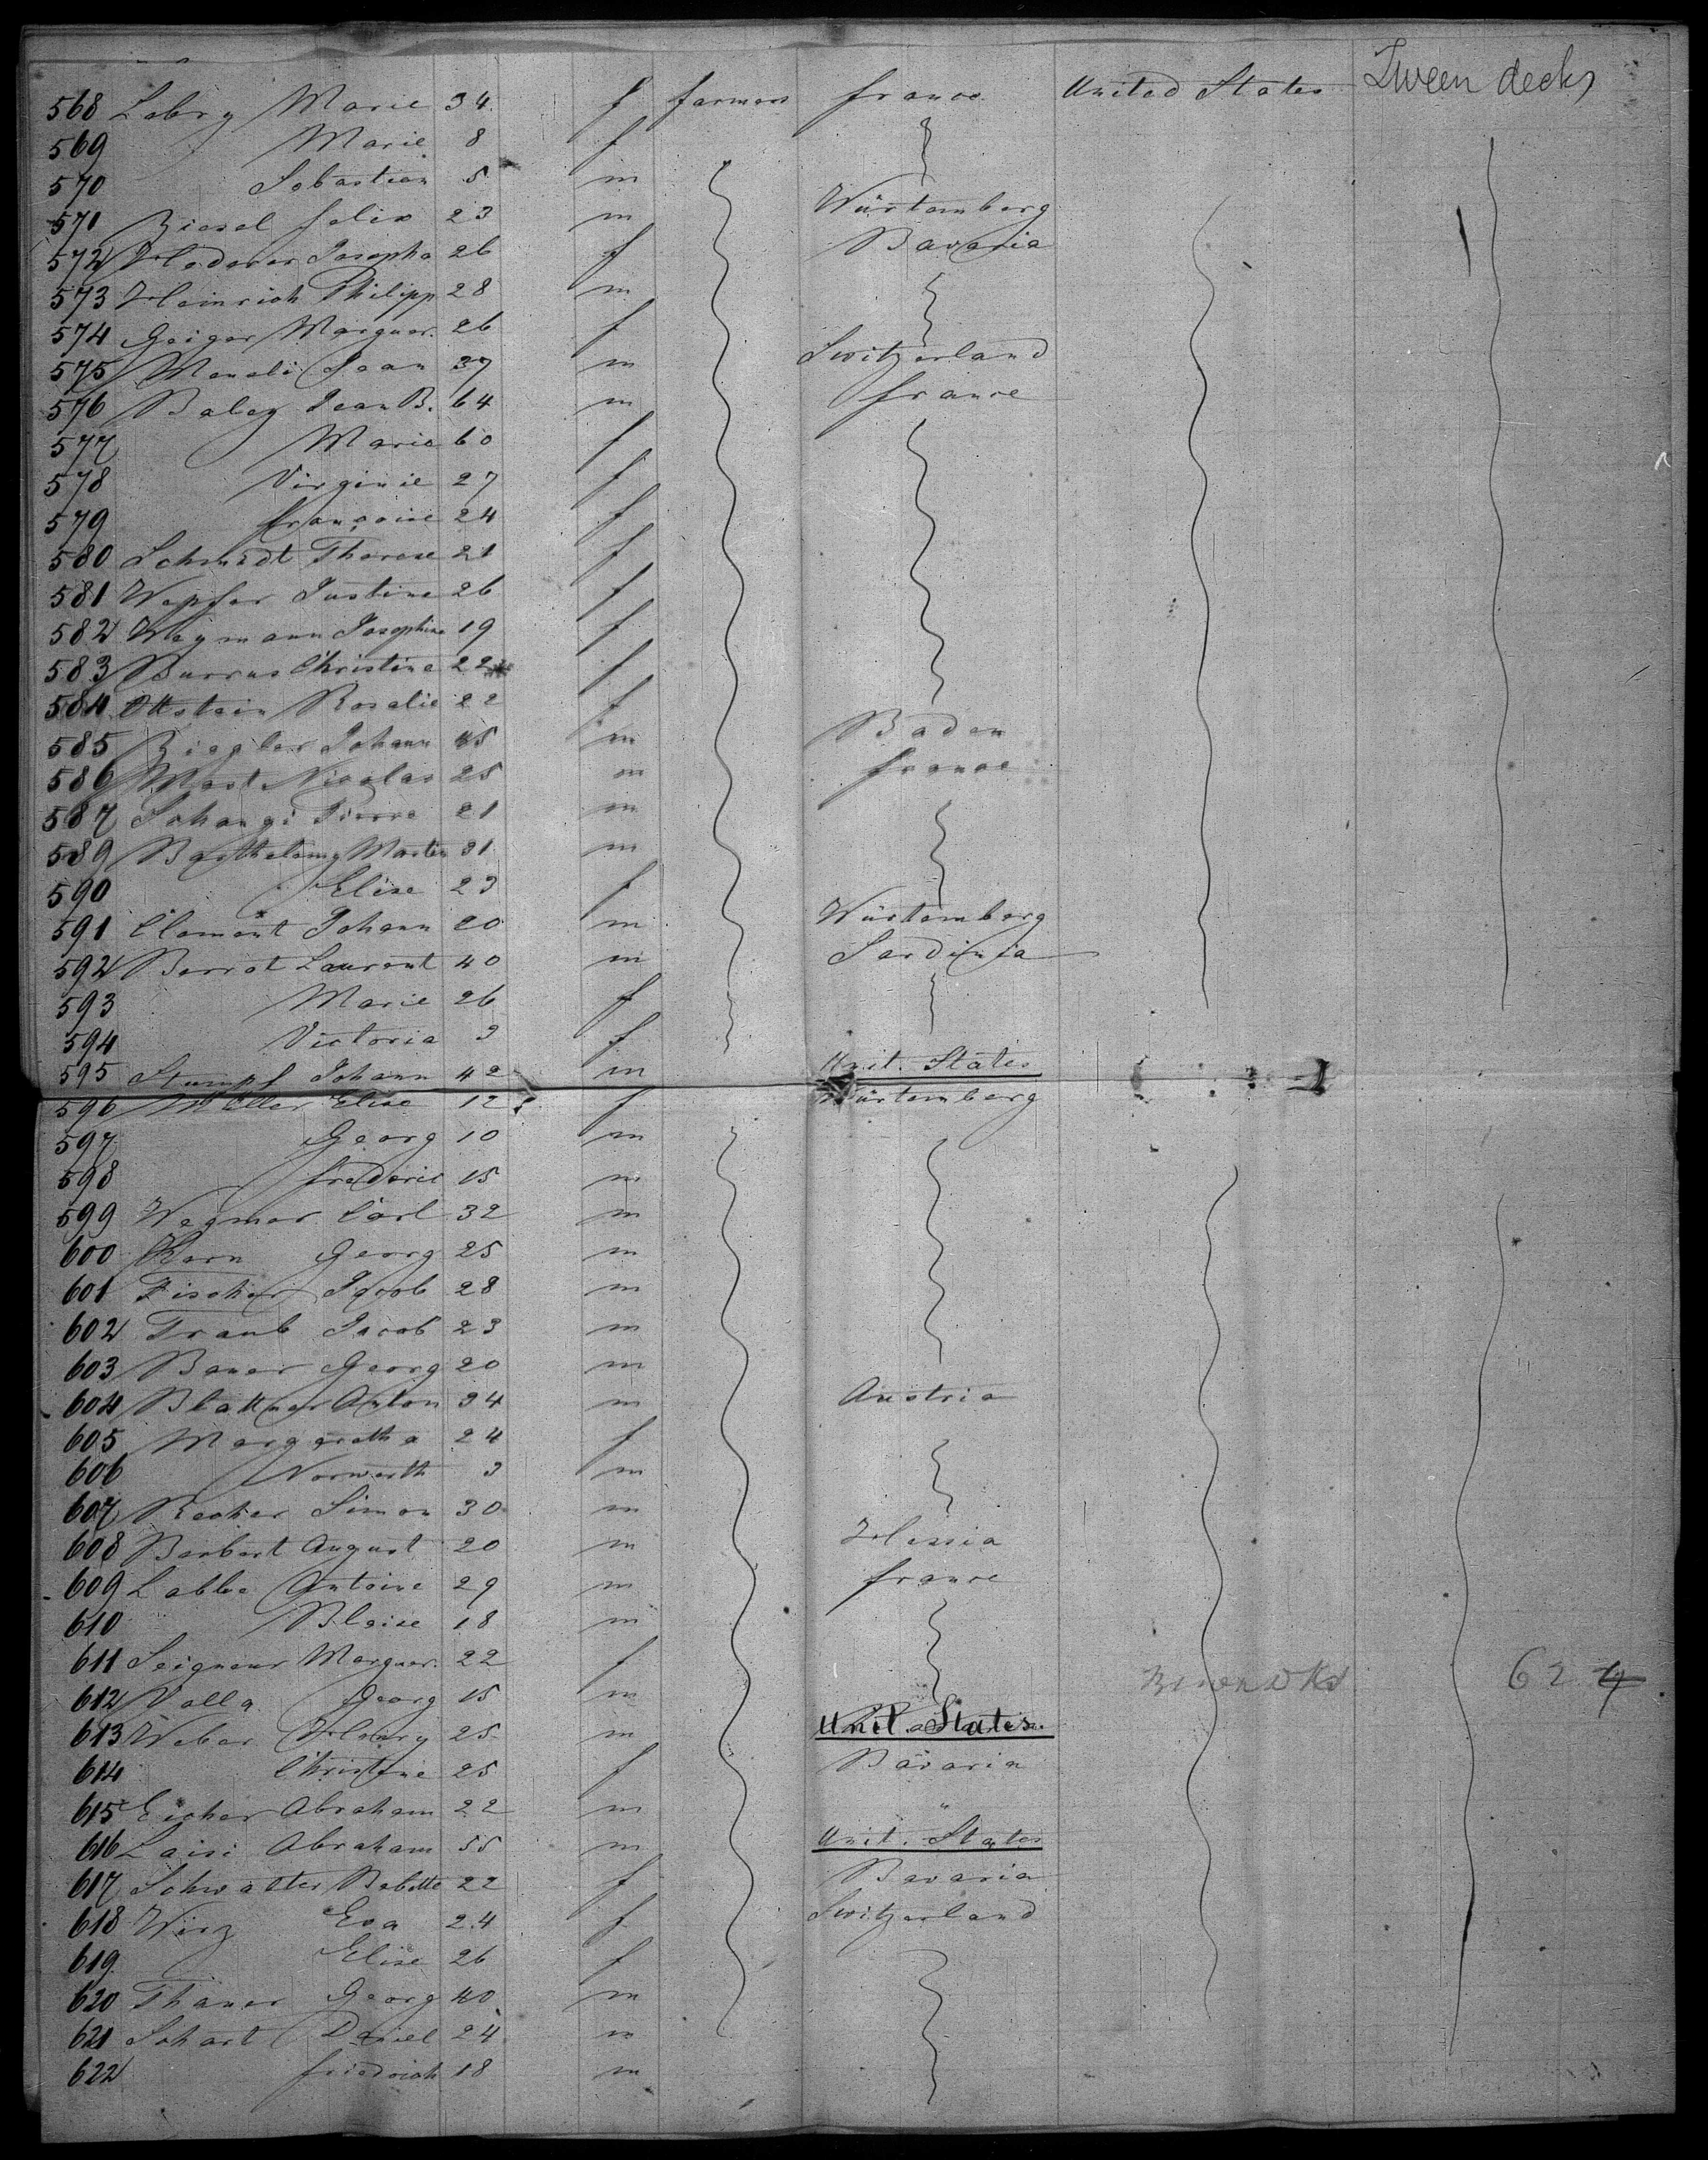 568 Lobry Marie 34 f farmers france United States Tween deck
569 Marie 8 f
570 Sebastian 5 m
571 Ziesel felix 23 m Würtemberg
572 Hoderer Josepha 26 f Bavaria
573 Heinrich Philipp 28 m
574 Geiger Marguer. 26 f
575 Jean 37 m Switzerland
576 Baley Jean B. 64 m france
577 Marie 60 f
578 Virginie 27 f
579 françoise 24 f
580 Schmidt Therese 21 f
581 Wepfer Justine 26 f
582 Weymann Josephine 19 f
583 Burrus Christine 22 f
584 Ottstein Rosalie 22 f
585 Ziegler Johann 45 m Baden
586 Mast Nicolas 25 m france
587 Schangi Pierre 21 m
589 Barthelemy Martin 31 m
590 Elise 23 f
591 Clement Johann 20 m Würtemberg
592 Berrot Laurent 40 m Sardinia
593 Marie 26 f
594 Victoria 3 f
595 Stumpf Johann 42 m Unit. States
596 Müller Elise 12 f Würtemberg
597 Georg 10 m
598 frederic 15 m
599 Wegmer Carl 32 m
600 Kern Georg 25 m
601 Fischer Jacob 28 m
602 Traub Jacob 23 m
603 Bauer Georg 20 m
604 Blattner Anton 34 m Austria
605 Margaretha 24 f
606 Norwerth 3 m
607 Recher Simon 30 m
608 Berbert August 20 m Hessia
609 Labbe Antoine 29 m france
610 Blaise 18 m
611 Seigneur Marguer. 22 f
62 4
612 Valla Georg 15 m
613 Weber Henry 25 m Unit. States.
614 Christine 25 f Bavaria
615 Eicher Abraham 22 m "
616 Laisi Abraham 55 m Unit. States
617 Schwatter Babette 22 f Bavaria
618 Wirz Eva 24 f Switzerland
619 Elise 26 f
620 Thauer Georg 40 m
621 Schart Daniel 24 m
622 friedrich 18 m